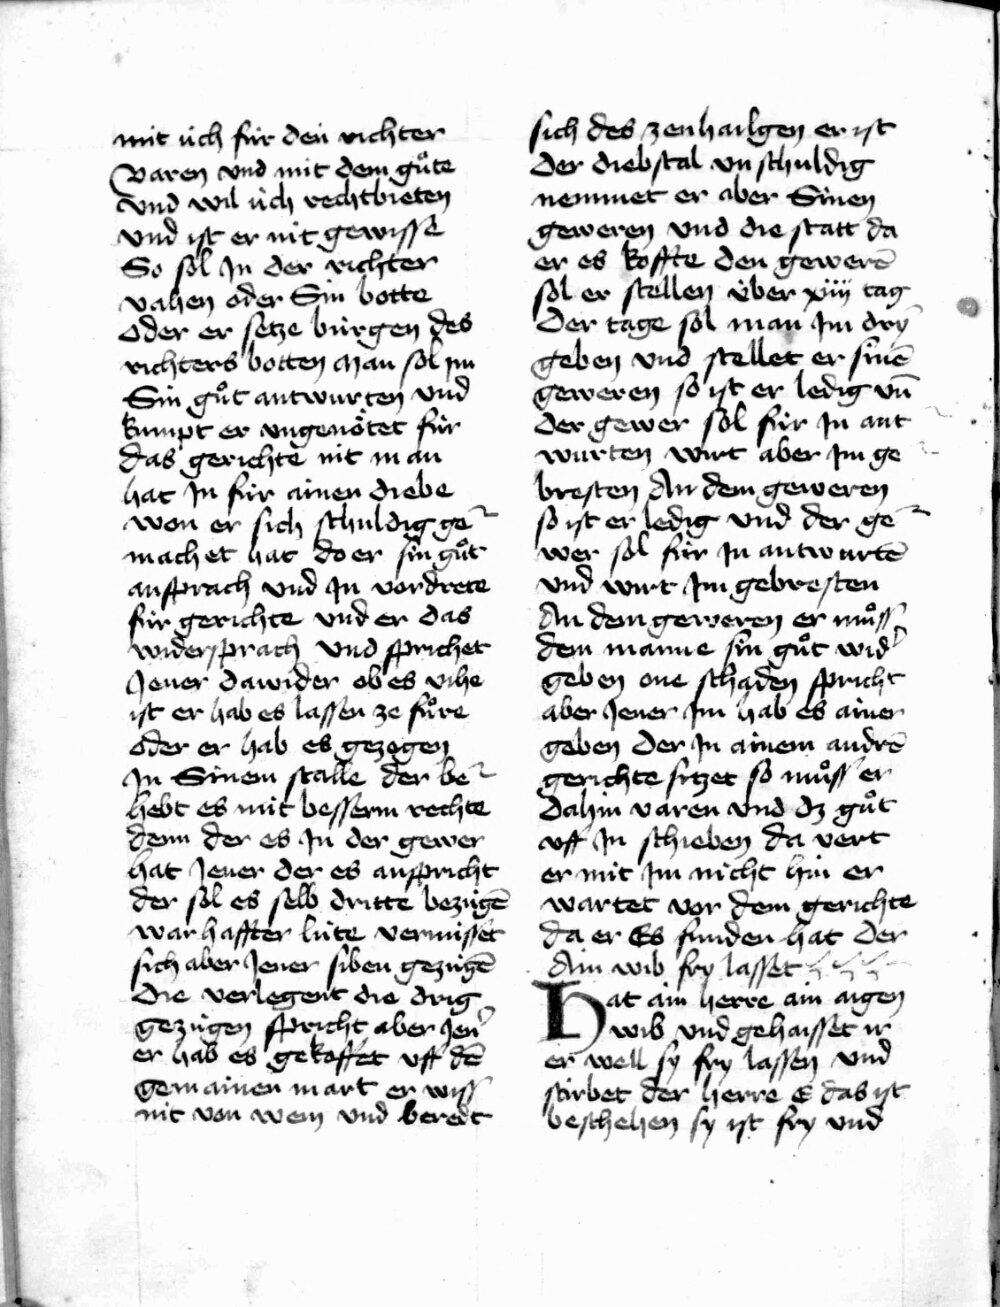 mit üch für den richter
varen vnd mit dem gůte
vnd wil üch rechtbieten
vnd ist er nit gewisse
So sol Jn der richter
vahen oder Sin botte
oder er setze bürgen des
richters botten man sol jm
Sin gůt antwurten vnd
kumpt er vngenötet für
das gerichte nit man
hat Jn für ainen diebe
won er sich schuldig ge
machet hat do er sin gůt
ansprach vnd Jn vordrete
für gerichte vnd er das
widersprach vnd sprichet
Jener dawider ob es vihe
ist er hab es lassen ze fůre
oder er hab es gezogen
Jn Sinem stalle der be
hebt es mit besserm rechte
denn der es Jn der gewer
hat Jener der es anspricht
der sol es selb dritte bezügē
warhaffter lüte vermisset
sich aber Jener siben gezügē
die verlegent die drig
gezügen spricht aber Jen̾
er hab es gekoffet vff dē
gemainen mart er wiss
nit von wem vnd beredt
sich des zen hailgen er ist
der diebstal vnschuldig
nemmet er aber Sinen
geweren vnd die statt da
er es koffte den gewerē
sol er stellen über xiiij tag
Der tage sol man Jm dry
geben vnd stellet er sinē
geweren so ist er ledig vn̄
der gewer sol für Jn ant
wurten wirt aber Jm ge
bresten An dem geweren
so ist er ledig vnd der ge
wer sol für Jn antwurtē
vnd wirt Jm gebresten
An dem geweren er můss
dem manne sin gůt wid̾
geben one schaden spricht
aber Jener Jm hab es ainer
geben Der Jn ainem andrē
gerichte sitzet so můss er
dahin varen vnd dz gůt
vff Jn schieben da vert
er mit Jm nicht hin er
wartet vor dem gerichte
da er Es funden hat Der
Ain wib fry lasset
Hat ain herre ain aigen
wib vnd gehaisset ir
er well sy fry lassen vnd
stirbet der herre E das ist
beschehen sy ist fry vnd